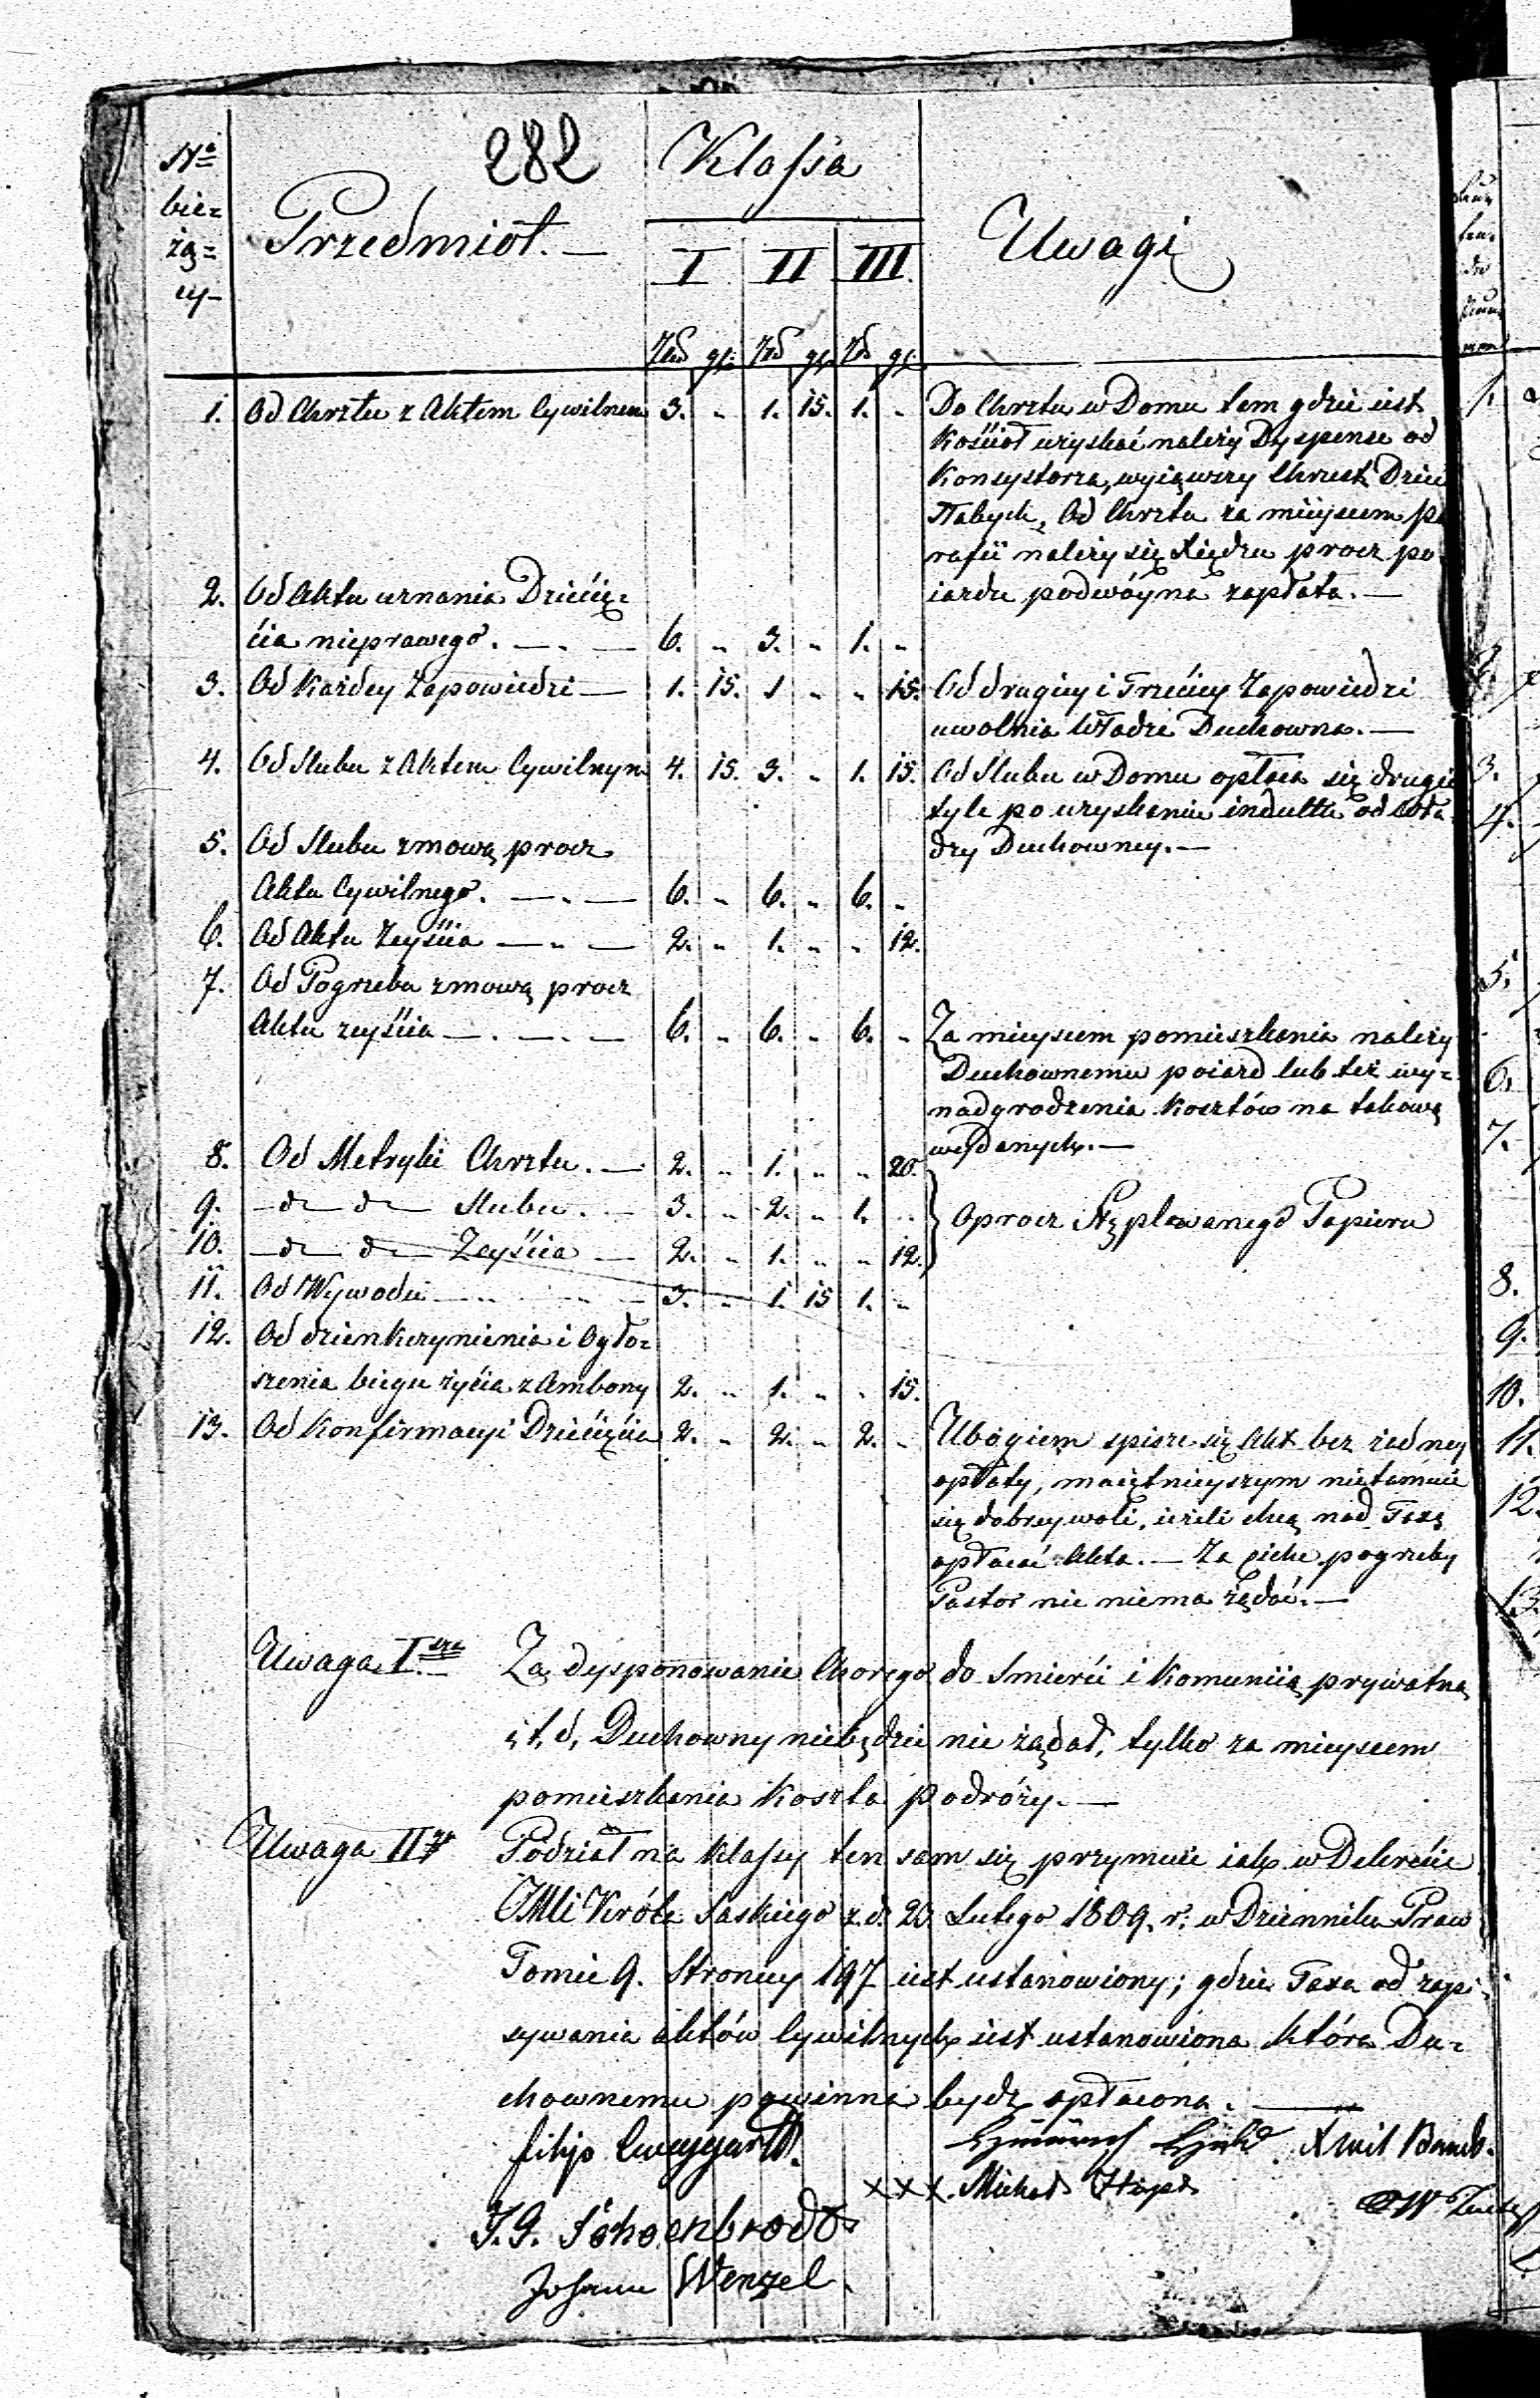 282
Nº bie= żą= cy-
Przedmiot. —
Klassa
I II III.
Uwagi
Złd gr: Złd gr: Złd gr:
1. Od Chrztu z Aktem Cywilnem 3. „ 1. 15. 1. „
Do Chrztu w Domu tam gdzie iest
Kościoł uzyskać należy Dyspense od
Konsystorza, wyiąwszy Chrzest Dzieci
słabych, Od Chrztu za mieyscem pa
rafii należy się Xiędzu procz po
iazdu podwóyna zapłata. —
2. Od Aktu uznania Dziecię=
cia nieprawego. — . — 6. „ 3. „ 1. „
3. Od Każdey Zapowiedzi — 1. 15. 1 „ „ 15.
Od drugiey i Trzeciey Zapowiedzi
uwolnia Władza Duchowna. —
4. Od Slubu z Aktem Cywilnym 4. 15. 3. „ 1. 15.
Od Slubu w Domu opłaca się drugie
tyle po uzyskaniu indultu od Wła
dzy Duchowney. —
5. Od Slubu zmową procz
Aktu Cywilnego. — . — 6. „ 6. „ 6. „
6. Od Aktu Zeyścia — „ — 2. „ 1. „ „ 12.
7. Od Pogrzebu zmową procz
Aktu zeyścia — . — . — 6. „ 6. „ 6. „
Za mieyscem pomieszkania należy
Duchownemu poiazd lub też wy=
nadgrodzenia Kosztów na takowy
wydanych. —
8. Od Metryki Chrztu. — 2. „ 1. „ „ 20.
9. — do do Slubu. — 3. „ 2. „ 1. „
10. — do do Zeyścia — 2. „ 1. „ „ 12.
Oprocz Stęplowanego Papieru
11. Od Wywodu — „ — „ — 3. „ 1. 15 1. „
12. Od dzienkczynienia i Ogło=
szenia biegu życia z Ambony 2. „ 1. „ „ 15.
13. Od Konfirmacyi Dziecięcia 2. „ 2. „ 2. „
Ubogiem spisze się Akt bez żadney
opłaty, maiętnieyszym nietamuie
się dobrey woli, ieżeli chcą nad Taxą
opłacać Akta. — Za ciche pogrzeby
Pastor nic niema żądać. —
Uwaga Isza Za dysponowanie Chorego do Smierci i Komuniią prywatną
i t. d. Duchowny niebędzie nic żądał, tylko za mieyscem
pomieszkania Koszta podróży. —
Uwaga II Podział na Klassy ten sam się przymuie iak w Dekrecie
JKMci Króla Saskiego z d. 20 Lutego 1809. r. w Dzienniku Praw
Tomie 9. Stronicy 197 iest ustanowiony; gdzie Taxa od zapi
sywania aktów Cywilnych iest ustanowiona która Du=
chownemu powinna bydz opłacona. —
xxx Michał
J. G. Schoenbrodt
Johann Wenzel.
1.
3.
4.
5.
6.
7.
8.
9.
10.
11.
12.
13.